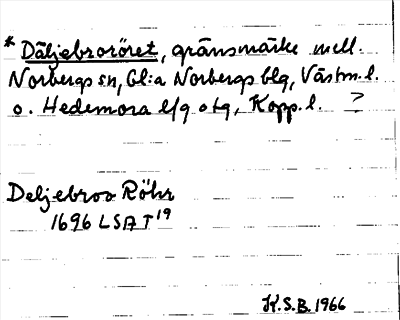 * Däljebroröret, gränsmärke mell.
Norbergs sn, Gl:a Norbergs blg, Västm. l.
o. Hedemora lfg o tg, Kopp. l. ?
Deljebroo Röhr
1696 LSA T19
K.S.B. 1966